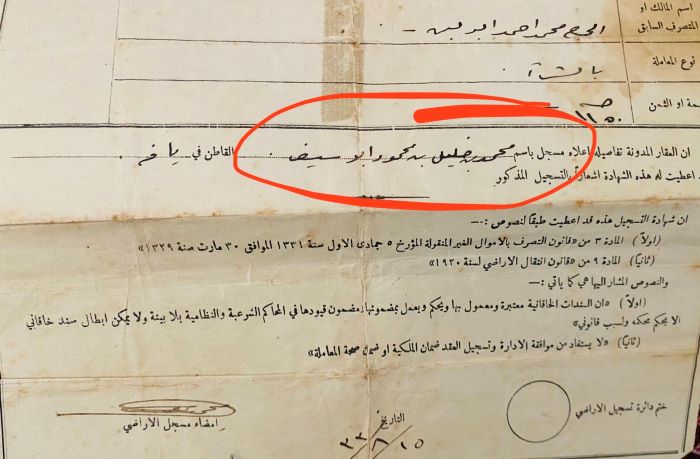 اسم المالك او
المتصرف السابق
الحاج محمد احمد ابو لبن
نوع المعاملة
بالشراء
او الثمن
ان العقار المدونة تفاصيله اعلاه مسجل باسم محمود خليل بن محمود ابو سيف القاطن في يافه
اعطيت له هذه الشهادة اشعاراً بالتسجيل المذكور
ان شهادة التسجيل هذه قد اعطيت طبقاً لنصوص :—
(اولاً) المادة ٣ من «قانون التصرف بالاموال الغير المنقولة المؤرخ ٥ جمادى الاول سنة ١٣٣١ الموافق ٣٠ مارت سنة ١٣٢٩»
(ثانياً) المادة ٩ من «قانون انتقال الاراضي لسنة ١٩٢٠»
والنصوص المشار اليها هي كما ياتي :—
(اولاً) «ان السندات الخاقانية معتبرة ومعمول بها ويحكم ويعمل بمضمونها ومضمون قيودها في المحاكم الشرعية والنظامية بلا بينة ولا يمكن ابطال سند خاقاني
الا بحكم محكمه ولسبب قانوني»
(ثانياً) «لا يستفاد من موافقة الادارة وتسجيل العقد ضمان الملكية او ضمان صحة المعاملة»
ختم دائرة تسجيل الاراضي
التاريخ
امضاء مسجل الاراضي